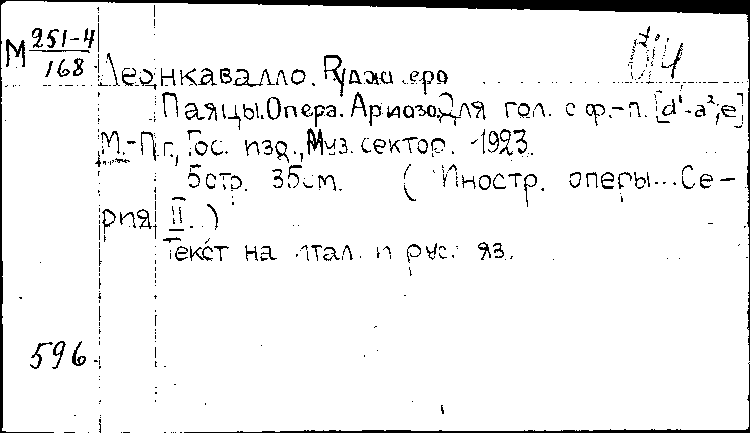 М 251-4
168
Леонкавалло. Руджиеро
Паяцы. Опера. Ариозо. Для гол. с ф.-п. [d¹-a²; e]
М.-Пг., Гос. изд., Муз. сектор. 1923.
5 стр. 35 см. (Иностр. оперы... Се-
рия II..)
Текст на итал. и рус. яз.
596